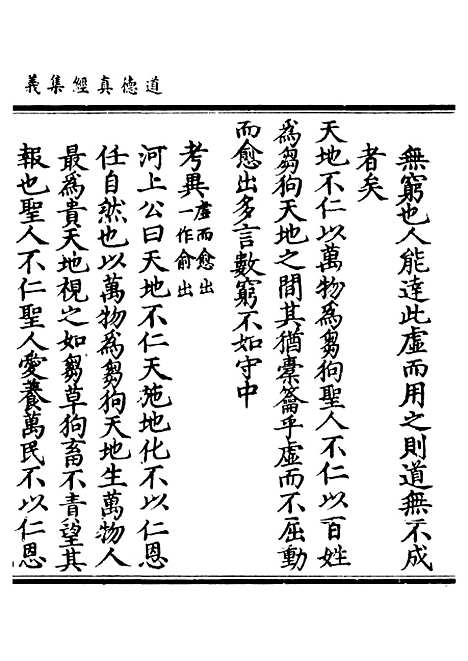 道德真經集義
無窮也人能達此虛而用之則道無不成
者矣
天地不仁以萬物為芻狗聖人不仁以百姓
為芻狗天地之間其猶橐籥乎虛而不屈動
而愈出多言數窮不如守中
考異虛而愈出一作俞出
河上公曰天地不仁天施地化不以仁恩
任自然也以萬物為芻狗天地生萬物人
最為貴天地視之如芻草狗畜不責望其
報也聖人不仁聖人愛養萬民不以仁恩